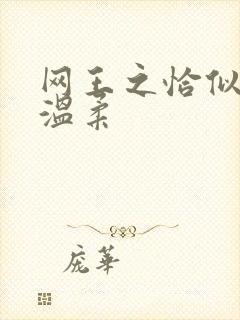 网王之恰似
温柔
庞华